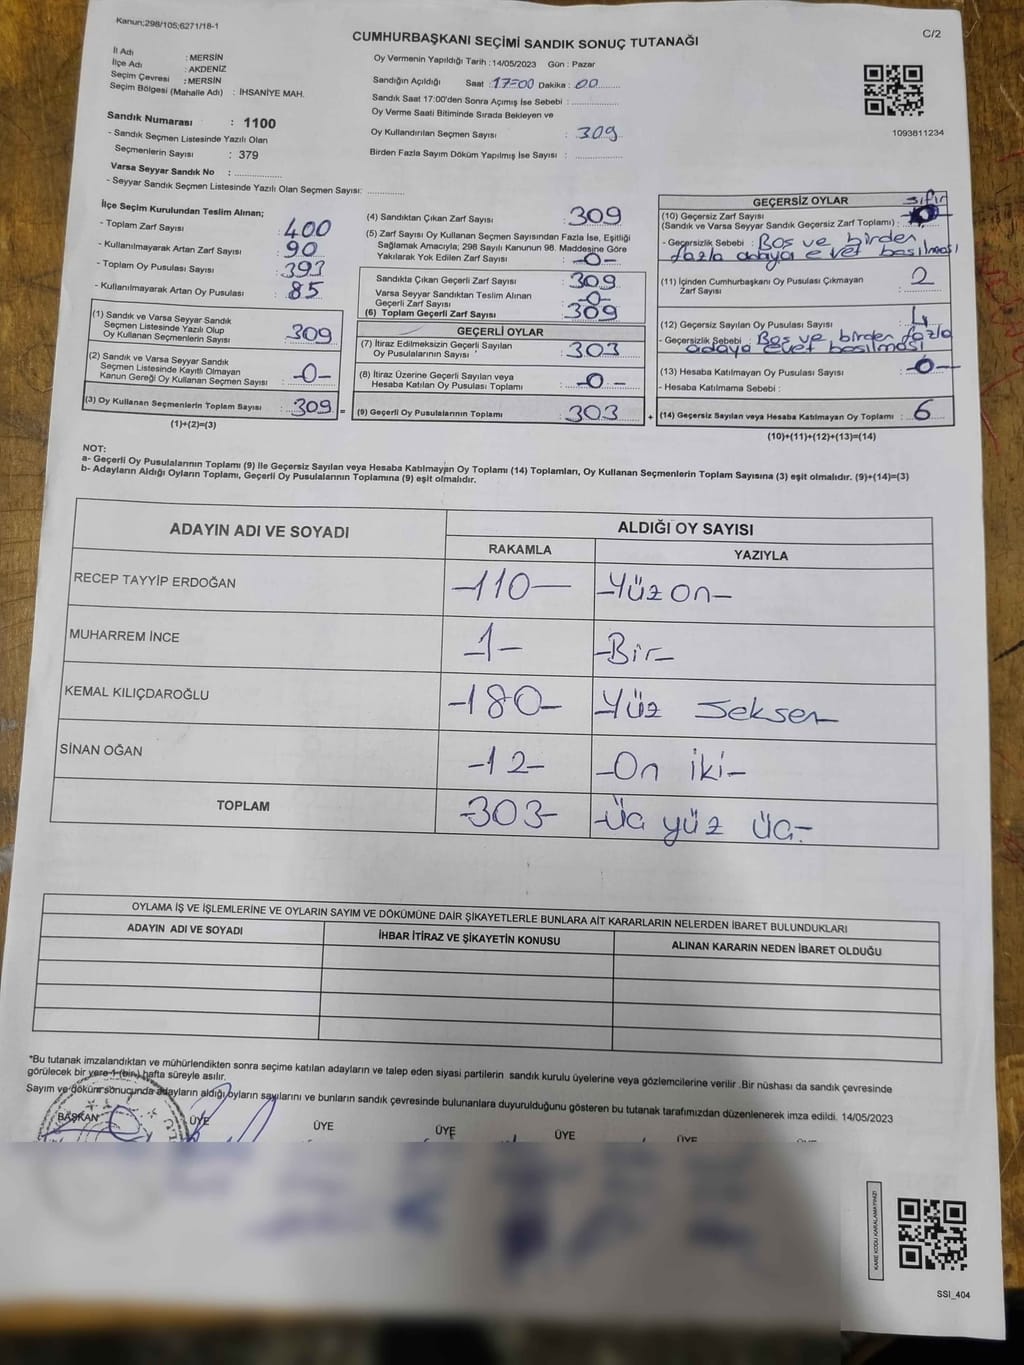 Kanun;298/105;6271/18-1
C/2
CUMHURBAŞKANI SEÇİMİ SANDIK SONUÇ TUTANAĞI
İl Adı : MERSİN
İlçe Adı : AKDENİZ
Seçim Çevresi : MERSİN
Seçim Bölgesi (Mahalle Adı) : İHSANİYE MAH.
Sandık Numarası : 1100
- Sandık Seçmen Listesinde Yazılı Olan
Seçmenlerin Sayısı : 379
Varsa Seyyar Sandık No :
- Seyyar Sandık Seçmen Listesinde Yazılı Olan Seçmen Sayısı:
Oy Vermenin Yapıldığı Tarih :14/05/2023 Gün : Pazar
Sandığın Açıldığı Saat : 17=00 Dakika : 00
Sandık Saat 17:00'den Sonra Açımış İse Sebebi :
Oy Verme Saati Bitiminde Sırada Bekleyen ve
Oy Kullandırılan Seçmen Sayısı : 309
Birden Fazla Sayım Döküm Yapılmış İse Sayısı :
1093811234
İlçe Seçim Kurulundan Teslim Alınan;
- Toplam Zarf Sayısı 400
- Kullanılmayarak Artan Zarf Sayısı : 90
- Toplam Oy Pusulası Sayısı : 393
- Kullanılmayarak Artan Oy Pusulası : 85
(1) Sandık ve Varsa Seyyar Sandık
Seçmen Listesinde Yazılı Olup
Oy Kullanan Seçmenlerin Sayısı : 309
(2) Sandık ve Varsa Seyyar Sandık
Seçmen Listesinde Kayıtlı Olmayan
Kanun Gereği Oy Kullanan Seçmen Sayısı : -0-
(3) Oy Kullanan Seçmenlerin Toplam Sayısı : 309 =
(1)+(2)=(3)
(4) Sandıktan Çıkan Zarf Sayısı : 309
(5) Zarf Sayısı Oy Kullanan Seçmen Sayısından Fazla İse, Eşitliği
Sağlamak Amacıyla; 298 Sayılı Kanunun 98. Maddesine Göre
Yakılarak Yok Edilen Zarf Sayısı : -0-
Sandıkta Çıkan Geçerli Zarf Sayısı : 309
Varsa Seyyar Sandıktan Teslim Alınan
Geçerli Zarf Sayısı : -0-
(6) Toplam Geçerli Zarf Sayısı : 309
GEÇERLİ OYLAR
(7) İtiraz Edilmeksizin Geçerli Sayılan
Oy Pusulalarının Sayısı : 303
(8) İtiraz Üzerine Geçerli Sayılan veya
Hesaba Katılan Oy Pusulası Toplamı : -0-
(9) Geçerli Oy Pusulalarının Toplamı : 303 +
GEÇERSİZ OYLAR
sıfır
(10) Geçersiz Zarf Sayısı
(Sandık ve Varsa Seyyar Sandık Geçersiz Zarf Toplamı) : 0
- Geçersizlik Sebebi : Boş ve birden
fazla adaya evet basılması
(11) İçinden Cumhurbaşkanı Oy Pusulası Çıkmayan
Zarf Sayısı : 2
(12) Geçersiz Sayılan Oy Pusulası Sayısı : 4
- Geçersizlik Sebebi : Boş ve birden fazla
adaya evet basılması
(13) Hesaba Katılmayan Oy Pusulası Sayısı : -0-
- Hesaba Katılmama Sebebi :
(14) Geçersiz Sayılan veya Hesaba Katılmayan Oy Toplamı : 6
(10)+(11)+(12)+(13)=(14)
NOT:
a- Geçerli Oy Pusulalarının Toplamı (9) İle Geçersiz Sayılan veya Hesaba Katılmayan Oy Toplamı (14) Toplamları, Oy Kullanan Seçmenlerin Toplam Sayısına (3) eşit olmalıdır. (9)+(14)=(3)
b- Adayların Aldığı Oyların Toplamı, Geçerli Oy Pusulalarının Toplamına (9) eşit olmalıdır.
ADAYIN ADI VE SOYADI ALDIĞI OY SAYISI
RAKAMLA YAZIYLA
RECEP TAYYİP ERDOĞAN -110- -Yüz on-
MUHARREM İNCE 1- -Bir-
KEMAL KILIÇDAROĞLU -180- Yüz seksen
SİNAN OĞAN -12- -On iki-
TOPLAM -303- -Üç yüz üç-
OYLAMA İŞ VE İŞLEMLERİNE VE OYLARIN SAYIM VE DÖKÜMÜNE DAİR ŞİKAYETLERLE BUNLARA AİT KARARLARIN NELERDEN İBARET BULUNDUKLARI
ADAYIN ADI VE SOYADI İHBAR İTİRAZ VE ŞİKAYETİN KONUSU ALINAN KARARIN NEDEN İBARET OLDUĞU
*Bu tutanak imzalandıktan ve mühürlendikten sonra seçime katılan adayların ve talep eden siyasi partilerin sandık kurulu üyelerine veya gözlemcilerine verilir .Bir nüshası da sandık çevresinde
görülecek bir yere 1 (bir) hafta süreyle asılır.
Sayım ve döküm sonucunda adayların aldığı oyların sayılarını ve bunların sandık çevresinde bulunanlara duyurulduğunu gösteren bu tutanak tarafımızdan düzenlenerek imza edildi. 14/05/2023
BAŞKAN ÜYE ÜYE ÜYE ÜYE ÜYE
KARE KODU KARALAMAYINIZ!
SSI_404